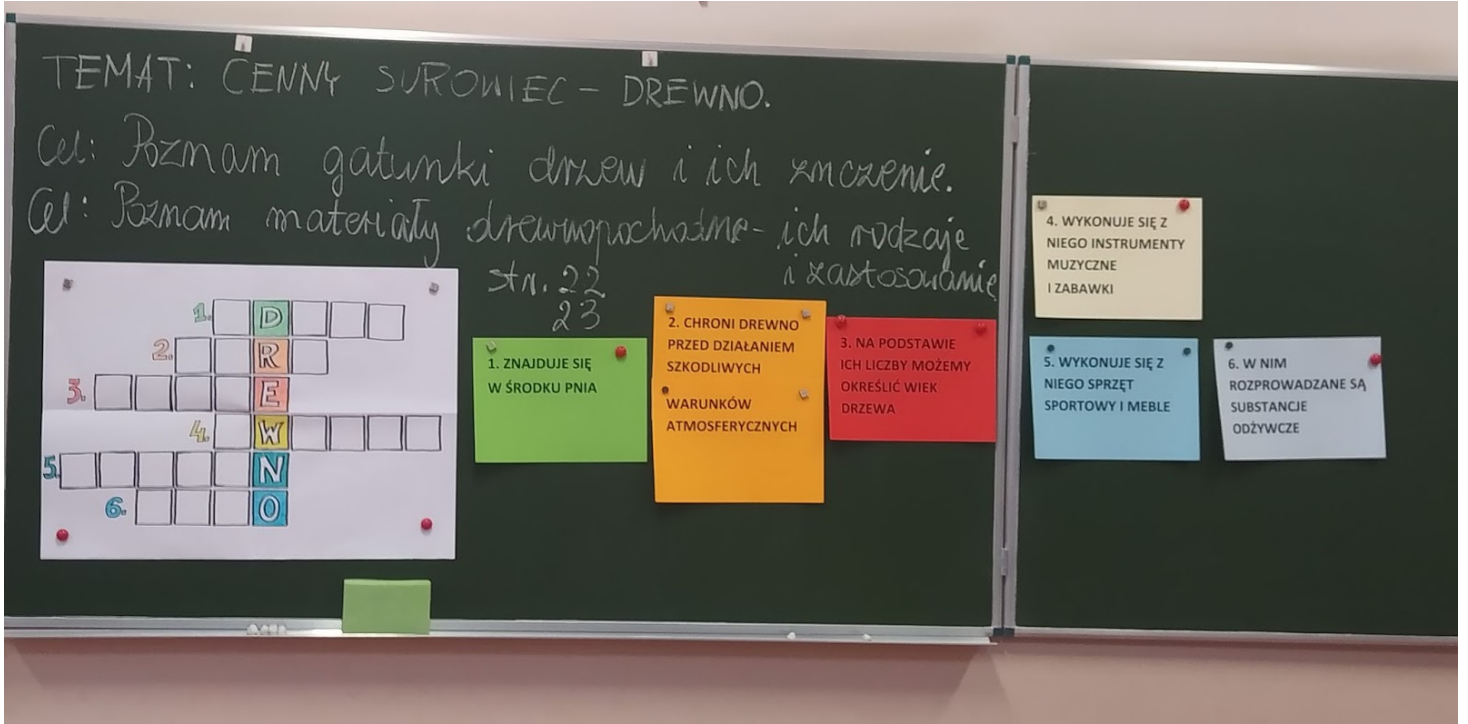 TEMAT: CENNY SUROWIEC – DREWNO.
Cel: Poznam gatunki drzew i ich znczenie.
Cel: Poznam materiały drewnopochodne – ich rodzaje
i zastosowanie
str. 22
23
1. D
2. R
3. E
4. W
5. N
6. O
1. ZNAJDUJE SIĘ
W ŚRODKU PNIA
2. CHRONI DREWNO
PRZED DZIAŁANIEM
SZKODLIWYCH
WARUNKÓW
ATMOSFERYCZNYCH
3. NA PODSTAWIE
ICH LICZBY MOŻEMY
OKREŚLIĆ WIEK
DRZEWA
4. WYKONUJE SIĘ Z
NIEGO INSTRUMENTY
MUZYCZNE
I ZABAWKI
5. WYKONUJE SIĘ Z
NIEGO SPRZĘT
SPORTOWY I MEBLE
6. W NIM
ROZPROWADZANE SĄ
SUBSTANCJE
ODŻYWCZE